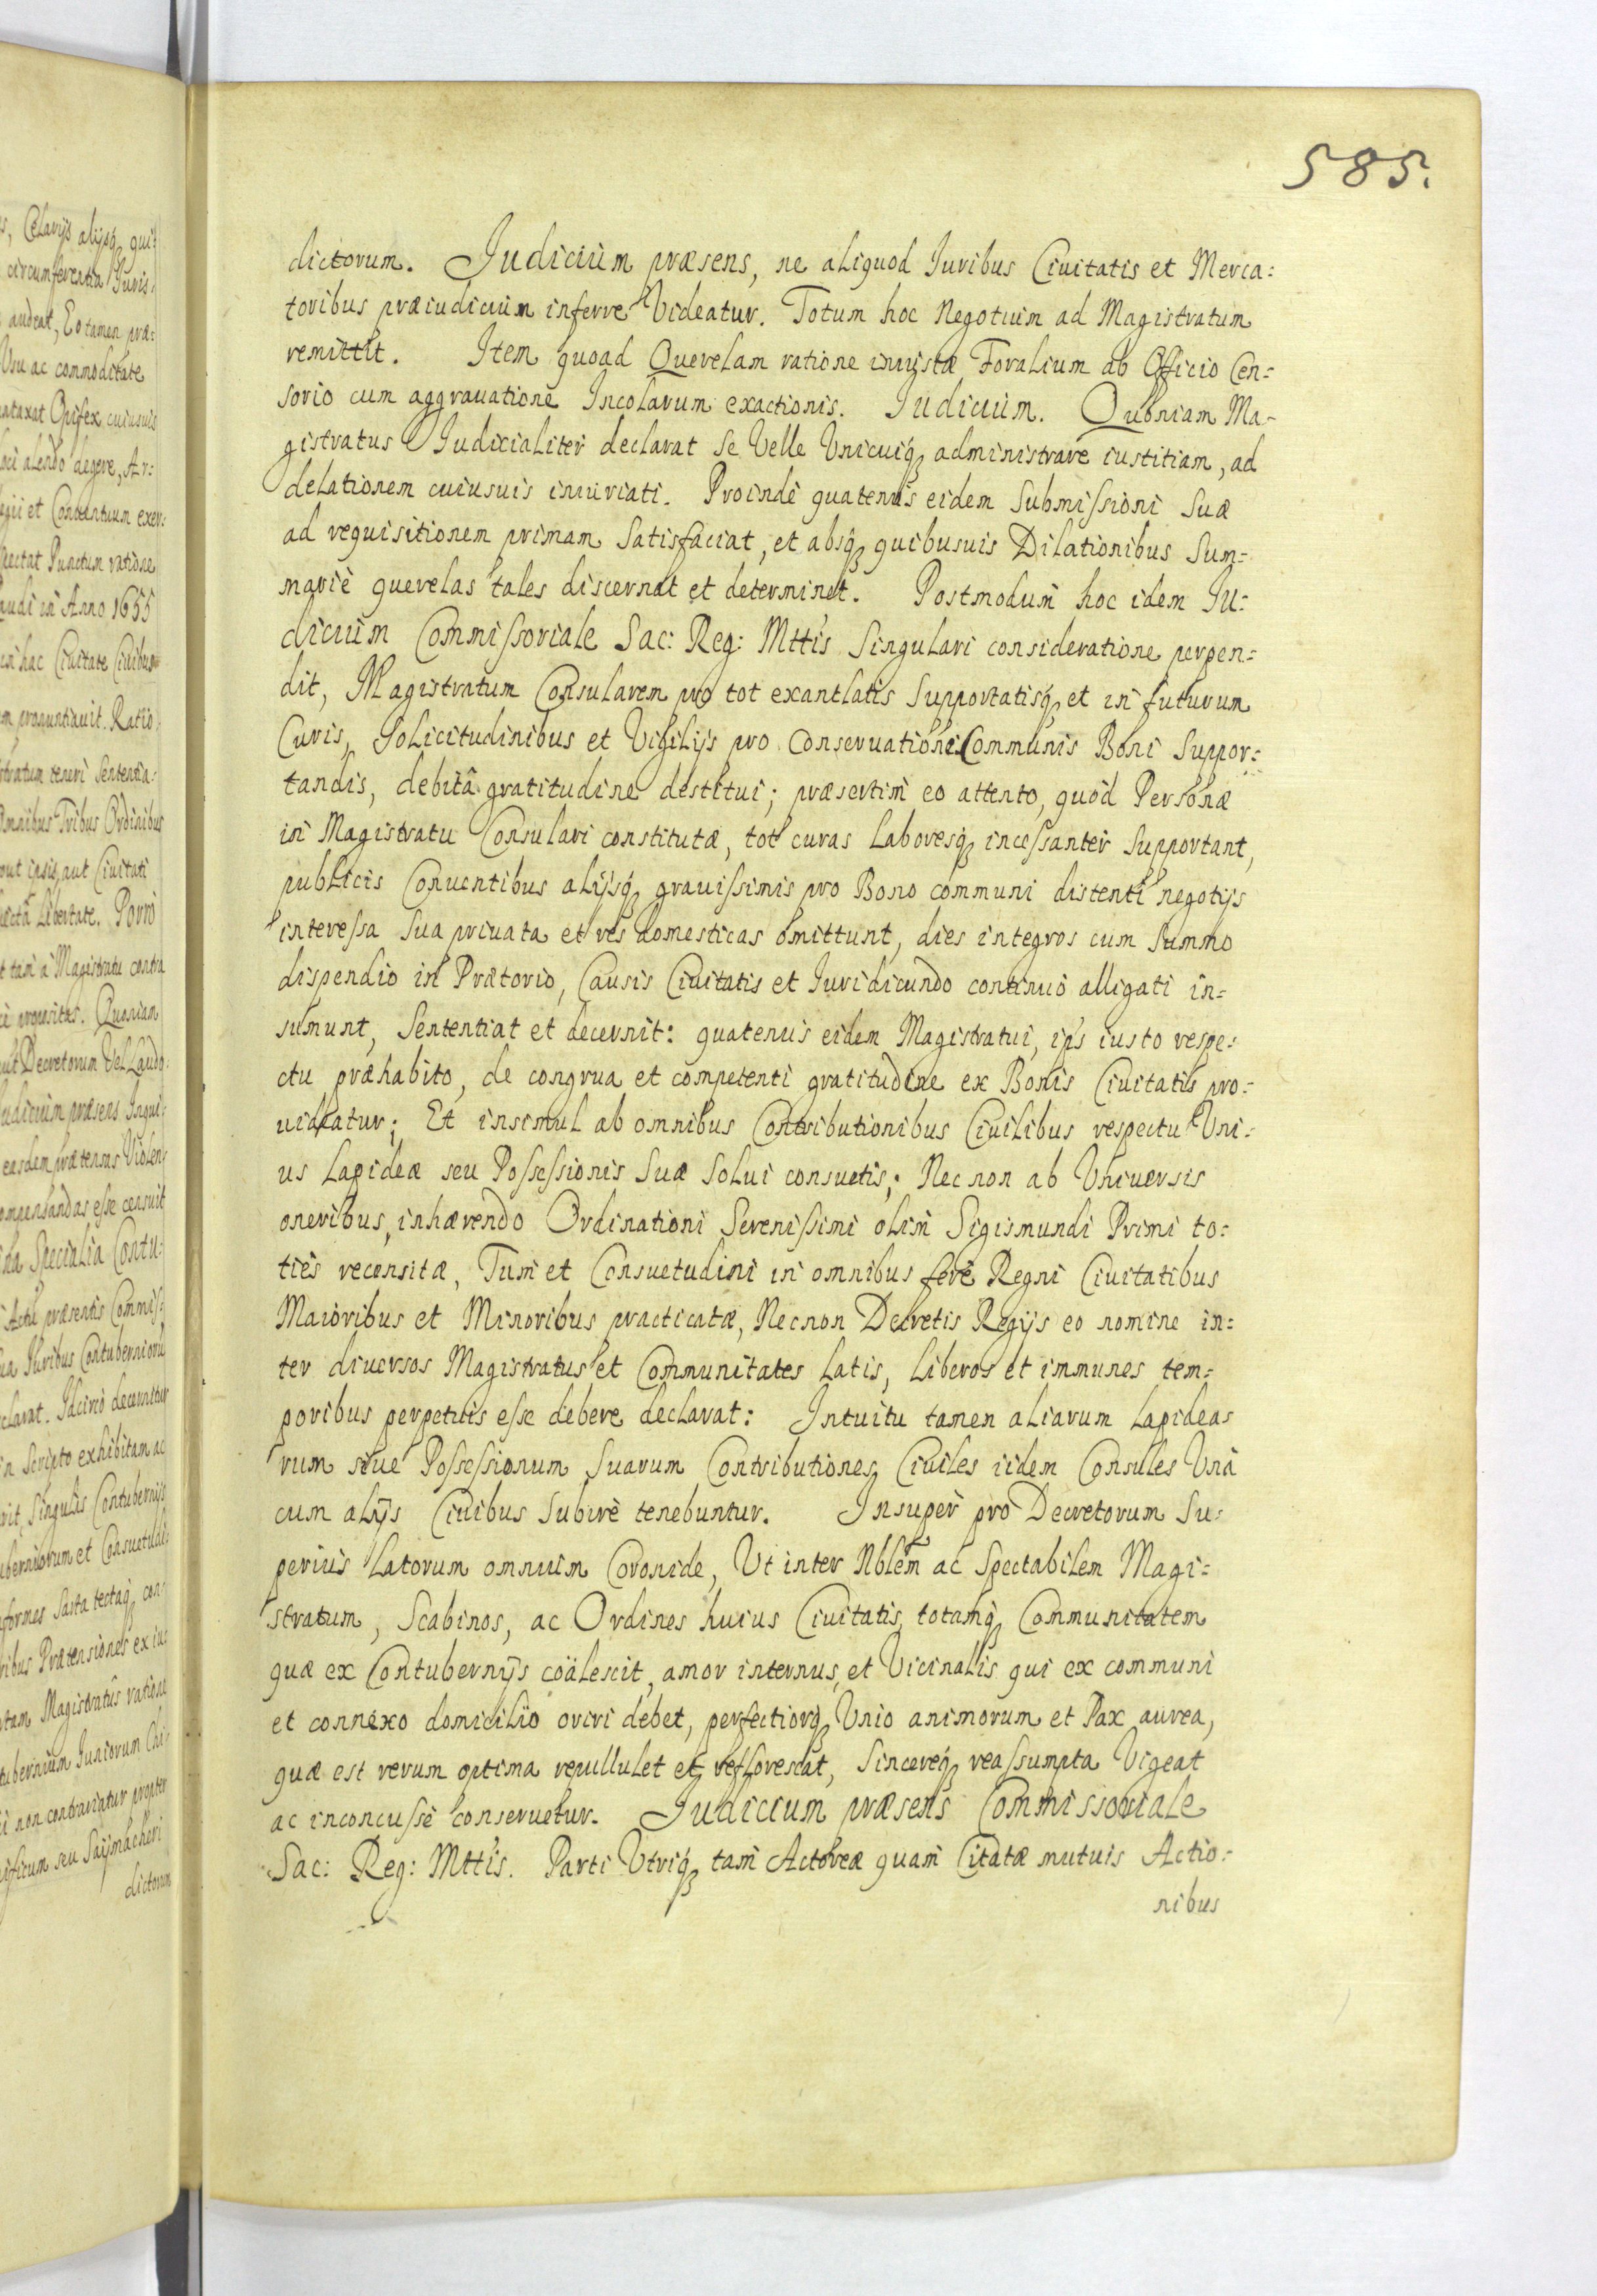 585.
dictorum. Judiciùm præsens, ne aliquod Juribus Ciuitatis et Merca:
toribus præiudiciùm inferre Videatur. Totum hoc Negotiùm ad Magistratum
remittit. Item quoad Querelam ratione iniustæ Foralium ab Officio Cen:
sorio cum aggrauatione Incolarum exactionis. Judiciùm. Quoniam Ma-
gistratus Judicialiter declarat Se Velle Vnicuiq; administrare iustitiam, ad
delationem cuiusuis iniuriati. Proinde quatenus eidem Submissioni Suæ
ad requisitionem primam Satisfaciat, et absq; quibusuis Dilationibus Sum-
mariè querelas tales discernat et determinet. Postmodum hoc idem Ju:
diciùm Commissoriale Sac: Reg: Mttis Singulari consideratione perpen=
dit, Magistratum Consularem pro tot exantlatis Supportatisq; et in futurum
Curis, Solicitudinibus et Vigilijs pro Conseruatione Communis Boni Suppor:
tandis, debitâ gratitudine destitui; præsertim eo attento, quòd Personæ
in Magistratu Consulari constitutæ, tot curas Laboresq; incessanter Supportant,
publicis Conuentibus alijsq; grauissimis pro Bono communi distenti negotijs
interessa Sua priuata et res domesticas omittunt, dies integros cum Summo
dispendio in Prætorio, Causis Ciuitatis et Juridicundo continuò alligati in=
sumunt, Sententiat et decernit: quatenus eidem Magistratui, ips iusto respe:
ctu præhabito, de congrua et competenti gratitudine ex Bonis Ciuitatis pro:
uideatur; Et insimul ab omnibus Contributionibus Ciuilibus respectu Vni:
us Lapideæ seu Possessionis Suæ Solui consuetis; Nec non ab Vniuersis
oneribus, inhærendo Ordinationi Serenissimi olim Sigismundi Primi to:
tiès recensitæ, Tum et Consuetudini in omnibus ferè Regni Ciuitatibus
Maioribus et Minoribus practicatæ, Necnon Decretis Regijs eo nomine in:
ter diuersos Magistratus et Communitates Latis, Liberos et immunes tem=
poribus perpetuis esse debere declarat: Intuitu tamen aliarum Lapidea:
rum siue Possessionum Suarum Contributiones Ciuiles iidem Consules Vnà
cum alijs Ciuibus Subire tenebuntur. Insuper pro Decretorum Su:
periùs Latorum omnium Coronide, Vt inter Nblem ac Spectabilem Magi:
stratum, Scabinos, ac Ordines huius Ciuitatis, totamq; Communitatem
quæ ex Contubernijs coälescit, amor internus, et Vicinalis qui ex communi
et connexo domicilio oriri debet, perfectiorq; Vnio animorum et Pax aurea,
quæ est rerum optima repullulet et reflorescat, Sincereq; reassumpta Vigeat
ac inconcussè conseruetur. Judicium præsens Commissoriale
Sac: Reg: Mttis. Parti Vtriq; tam Actoreæ quam Citatæ mutuis Actio:
nibus